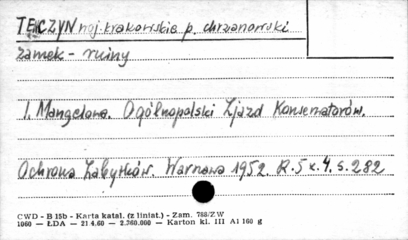 TĘCZYN woj. krakowskie p. chrzanowski
zamek - ruiny
I. Mangelowa. Ogólnopolski Zjazd Konserwatorów.
Ochrona Zabytków. Warszawa 1952. R. 5 z. 4. s. 282
CWD - B 15b - Karta katal. (z liniat.) - Zam. 788/ZW
1060 — ŁDA — 21 4.60 — 2.260.000 — Karton kl. III A1 160 g